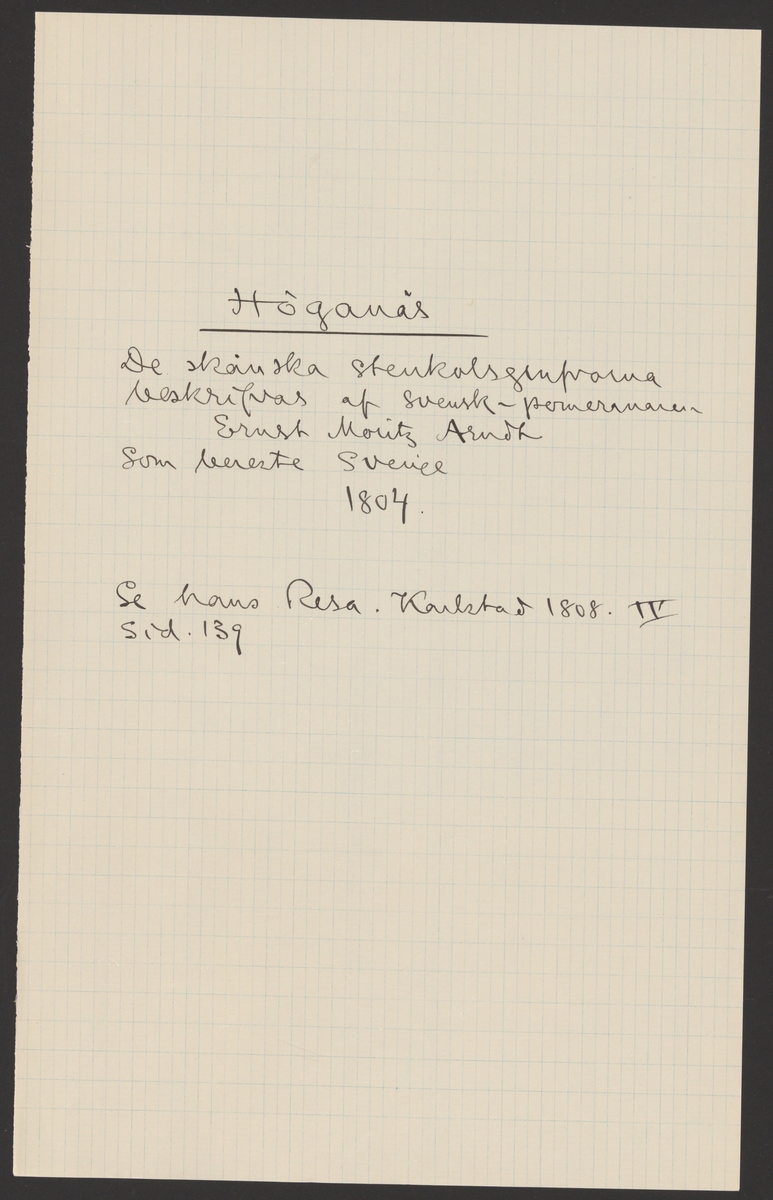 Höganäs
De skånska stenkolsgrufvorna
beskrifvas af svensk-pomeranaren
Ernst Moritz Arndt
Som bereste Sverige
1804.
Se hans Resa. Karlstad 1808. IV
Sid. 139